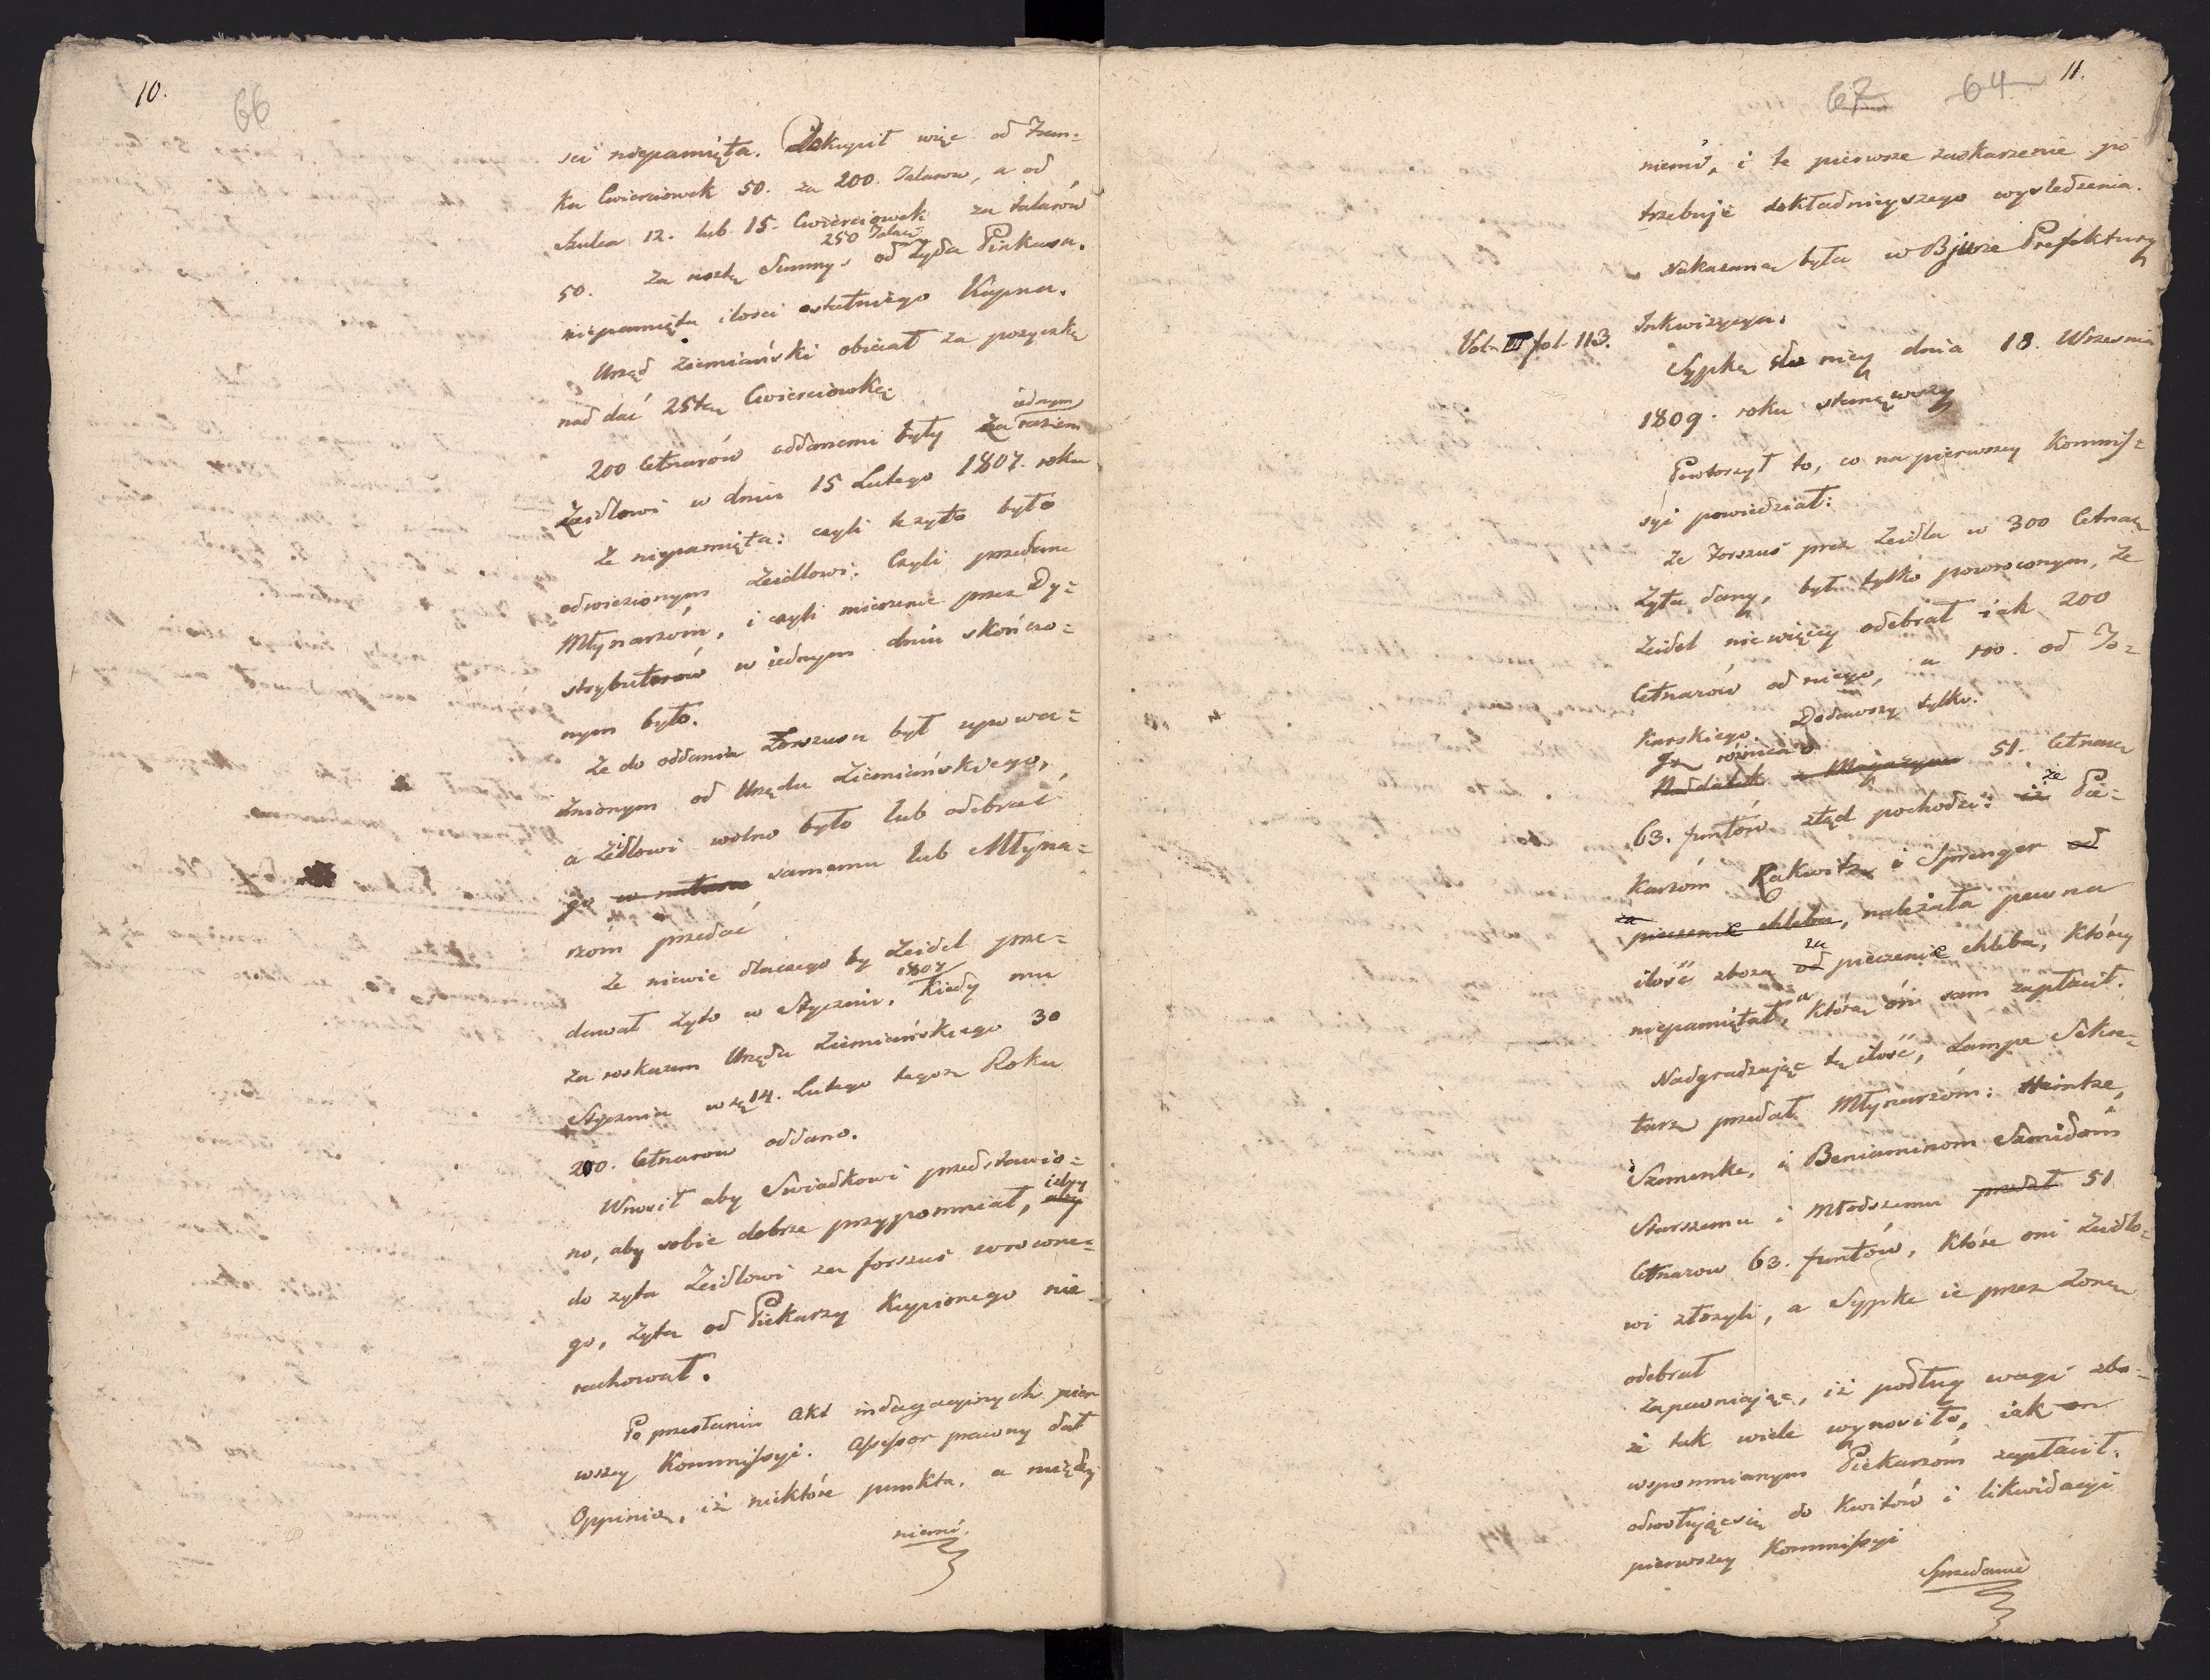 10.
66
ści niepamięta. Dokupił więc od Fran=
ka Cwierciowek 50. za 200 Talarow, a od
Szulca 12. lub 15. Cwierciowek za talarów
50. za resztę Summy 250 Talar od Zyda Pinkusa.
niepamięta ilości ostatniego Kupna.
Urząd ziemiański obiecał za pozyczkę
nad dać 25tą Cwierciowkę
200 Cetnarów oddanemi były Za iednym razem
Zeidlowi w dniu 15 Lutego 1807. roku
Ze niepamięta: czyli te zyto było
odwiezionym Zeidlowi: Czyli przedane
Młynarzóm, i czyli mierzenie przez Dy=
strybutorow w iednym dniu skończo=
nym było.
Ze do oddania Forszusu był upowa=
żnionym od Urzędu Ziemiańskiego,
a Zeidlowi wolno było lub odebrać
go w natura samemu lub Młyna=
rzóm przedać
Ze niewie dlaczego by Zeidel prze=
dawał zyto w Styczniu 1807. Kiedy mu
za roskazem Urzędu Ziemiańskiego 30
Stycznia 14. Lutego tegoz Roku
200. Cetnarow oddano.
Wnosił aby Swiadkowi przedstawio=
no, aby sobie dobrze przypomniał, aby iżby
do zyta Zeidlowi za forszus wrocone=
go, Zyta od Piekarzy Kupionego nie
rachował.
Po przesłaniu Akt indagacyinych pier
wszey Kommissyi. Assessor prawny dał
Oppinią, iż niektóre punkta, a między
niemi.
67 64 11.
niemi, i te pierwsze zaskarzenie po
trzebuje dokładnieyszego wysledzenia.
Nakazana była w Bjurze Prefektury
Inkwizycya.
Vol. III fol. 113.
Sypke do niey dnia 18. Wrzesnia
1809. roku stanąwszy
Powtorzył to, co na pierwszey Kommis=
syi powiedział:
Ze Forszus prez Zeidla w 300 Cetnarę
Zyta dany, był tylko powroconym, Ze
Zeidel niewięcey odebrał iak 200
Cetnarów od niego, a 100. od Jo=
karskiego. Dodawszy tylko:
Ze róznica o
Naddatek z Magazynu 51. Cetnara
63. funtów ztąd pochodzi: iż że Pie=
karzóm Rakwitz i Sprenger od
za pieczenie chleba, nalezała pewna
ilość zboza od za pieczenie chleba, którey
niepamiętał, a którą ón sam zapłacił.
Nadgradzając tę ilość, Lampe Sekre=
tarz przedał Młynarzóm: Heintze,
Szmunke, i Beniaminom Szmidóm
Starszemu i Młodszemu przedał 51
Cetnarow 63. funtów, które oni Zeidlo=
wi złozyli, a Sypke ie przez Zone
odebrał
Zapewniając, iż podług wagi zbo=
że tak wiele wynosiło, iak on
wspomnianym Piekarzóm zapłacił.
odwołującsię do Kwitów i likwidacyi
pierwszey Kommissyi
Sprzedanie